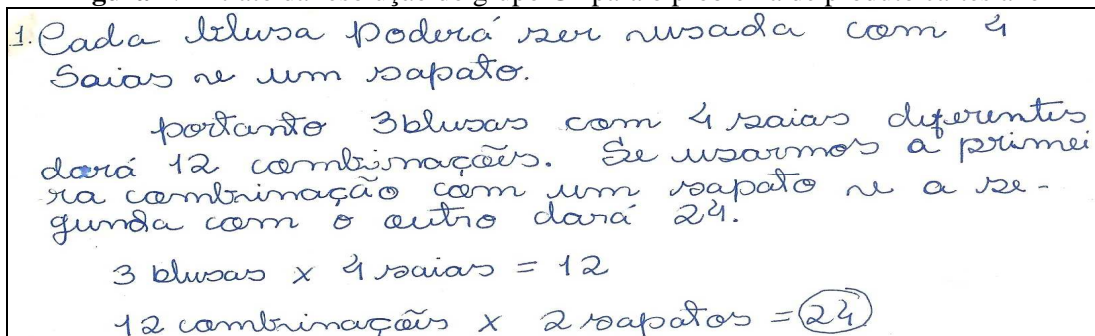 1. Cada blusa poderá ser usada com 4
Saias e um sapato.
portanto 3 blusas com 4 saias diferentes
dará 12 combinações. Se usarmos a primei
ra combinação com um sapato e a se-
gunda com o outro dará 24.
3 blusas x 4 saias = 12
12 combinações x 2 sapatos = 24